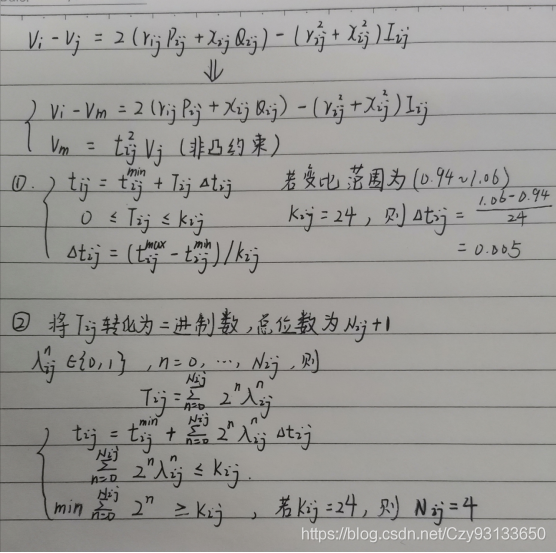 Vi - Vj = 2(rij Pij + xij Qij) - (rij² + xij²) Iij
⇓
{ Vi - Vm = 2(rij Pij + xij Qij) - (rij² + xij²) Iij
Vm = tij² Vj (非凸约束)
①. { tij = tij^min + Tij Δtij 若变比范围为(0.94~1.06)
0 ≤ Tij ≤ Kij Kij = 24, 则 Δtij = (1.06-0.94)/24
Δtij = (tij^max - tij^min)/kij = 0.005
② 将Tij转化为二进制数,总位数为Nij+1
λij^n ∈{0,1}, n=0, …, Nij, 则
Tij = Σ_{n=0}^{Nij} 2^n λij^n
{ tij = tij^min + Σ_{n=0}^{Nij} 2^n λij^n Δtij
Σ_{n=0}^{Nij} 2^n λij^n ≤ Kij.
min Σ_{n=0}^{Nij} 2^n ≥ Kij, 若Kij=24, 则 Nij=4
https://blog.csdn.net/Czy93133650